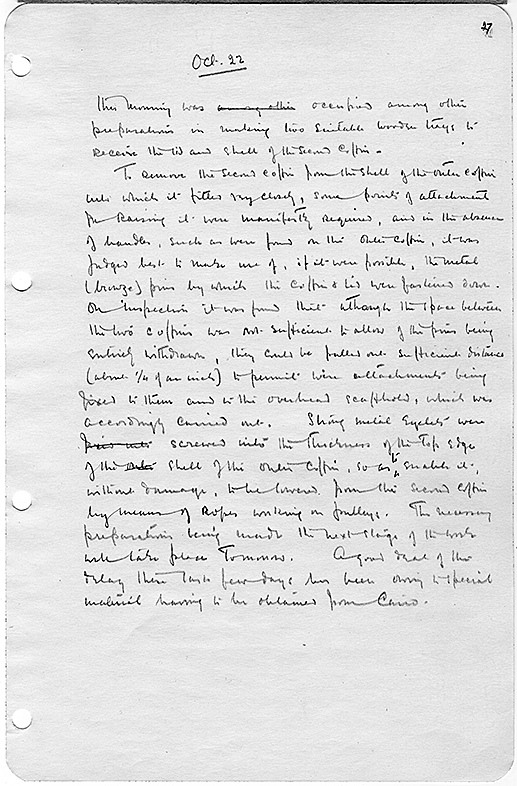 47
Oct. 22
This morning was among other occupied among other
preparations in making two suitable wooden trays to
receive the lid and shell of the second coffin.
To remove the second coffin from the shell of the outer coffin
into which it fitted very closely, some points of attachment
for raising it were manifestly required, and in the absence
of handles, such as were found on the outer coffin, it was
judged best to make use of, if it were possible, the metal
(bronze) pins by which the coffin & lid were fastened down.
On inspection it was found that although the space between
the two coffins was not sufficient to allow of the pins being
entirely withdrawn, they could be pulled out sufficient distance
(about ¼ of an inch) to permit wire attachments being
fixed to them and to the overhead scaffold, which was
accordingly carried out. Strong metal eyelets were
screwed into the thickness of the top edge
of the shell of the outer coffin, so as to enable it,
without damage, to be lowered from the second coffin
by means of ropes working on pulleys. The necessary
preparations being made the next stage of the work
will take place tomorrow. A good deal of the
delay these last few days has been owing to special
material having to be obtained from Cairo.